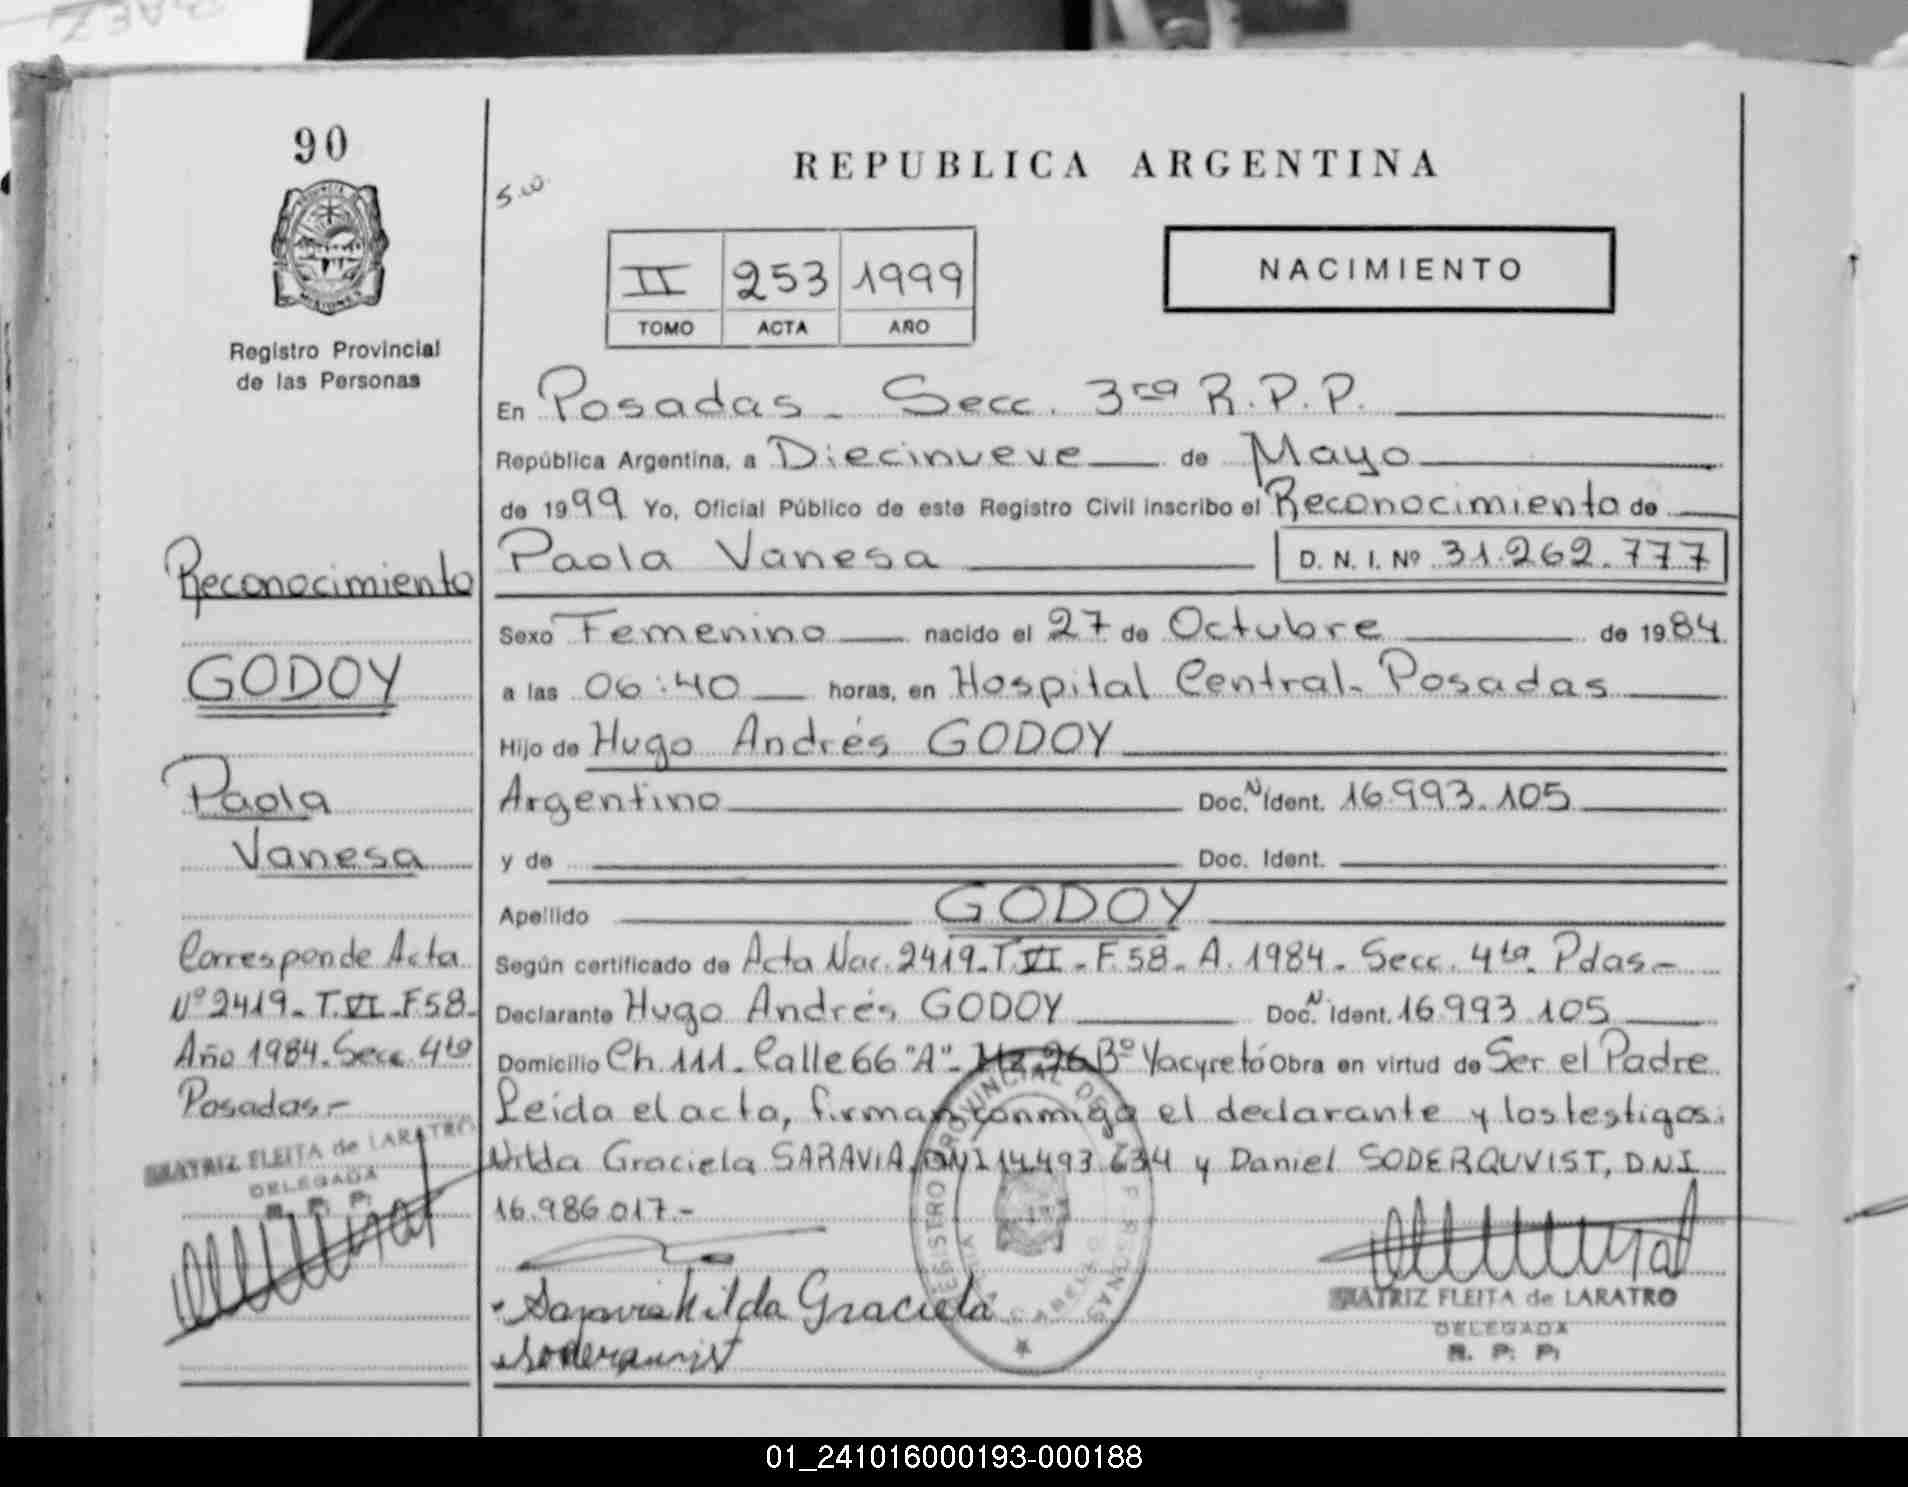 90
REPUBLICA ARGENTINA
NACIMIENTO
II 253 1999
TOMO ACTA AÑO
Registro Provincial
de las Personas
En Posadas - Secc. 3ra R.P.P.
República Argentina, a Diecinueve de Mayo
de 1999 Yo, Oficial Público de este Registro Civil inscribo el Reconocimiento de
Paola Vanesa D. N. I. Nº 31.262.777
Sexo Femenino nacido el 27 de Octubre de 1984
a las 06:40 horas, en Hospital Central - Posadas
Hijo de Hugo Andrés GODOY
Argentino Doc. N Ident. 16.993.105
y de Doc. Ident.
Apellido GODOY
Según certificado de Acta Nac. 2419-T.VI-F.58-A.1984-Secc. 4ta. Pdas.-
Declarante Hugo Andrés GODOY Doc. N Ident. 16.993.105
Domicilio Ch 111 - Calle 66 "A" - Bº Yacyretó Obra en virtud de Ser el Padre
Leida el acta, firman conmigo el declarante y los testigos.
Nilda Graciela SARAVIA, DNI 14.493.634 y Daniel SODERQUVIST, D.N.I
16.986.017.-
Saravia Nilda Graciela
Soderquvist
BEATRIZ FLEITA de LARATRO
DELEGADA
R. P. P.
Reconocimiento
GODOY
Paola
Vanesa
Corresponde Acta
Nº 2419-T.VI-F58-
Año 1984-Secc. 4ta
Posadas.-
BEATRIZ FLEITA de LARATRO
DELEGADA
R. P. P.
01_241016000193-000188